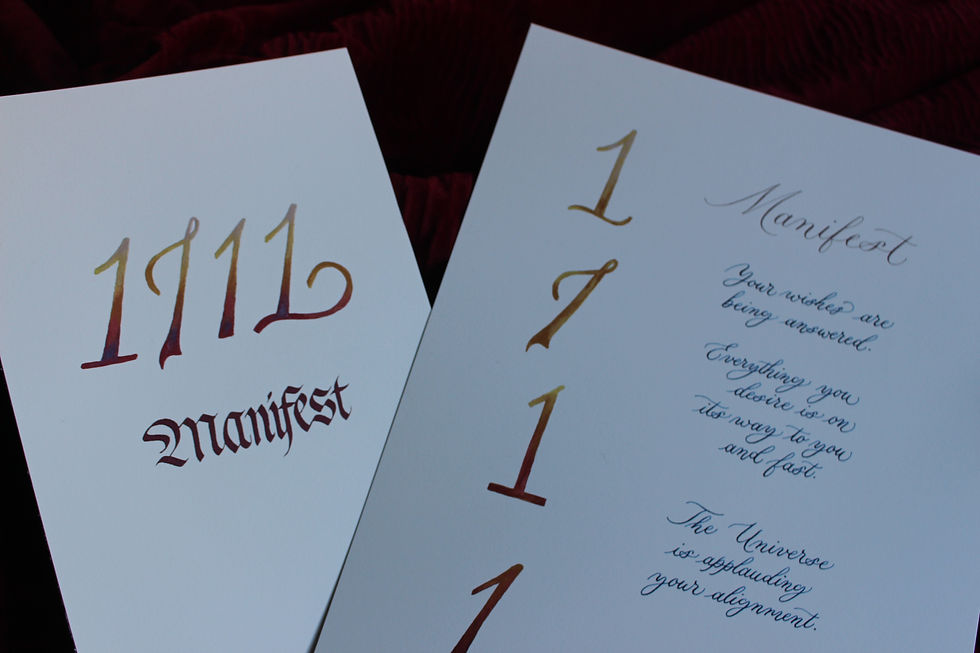 1711
Manifest
1
7
1
1
Manifest
Your wishes are
being answered.
Everything you
desire is on
its way to you
and fast.
The Universe
is applauding
your alignment.